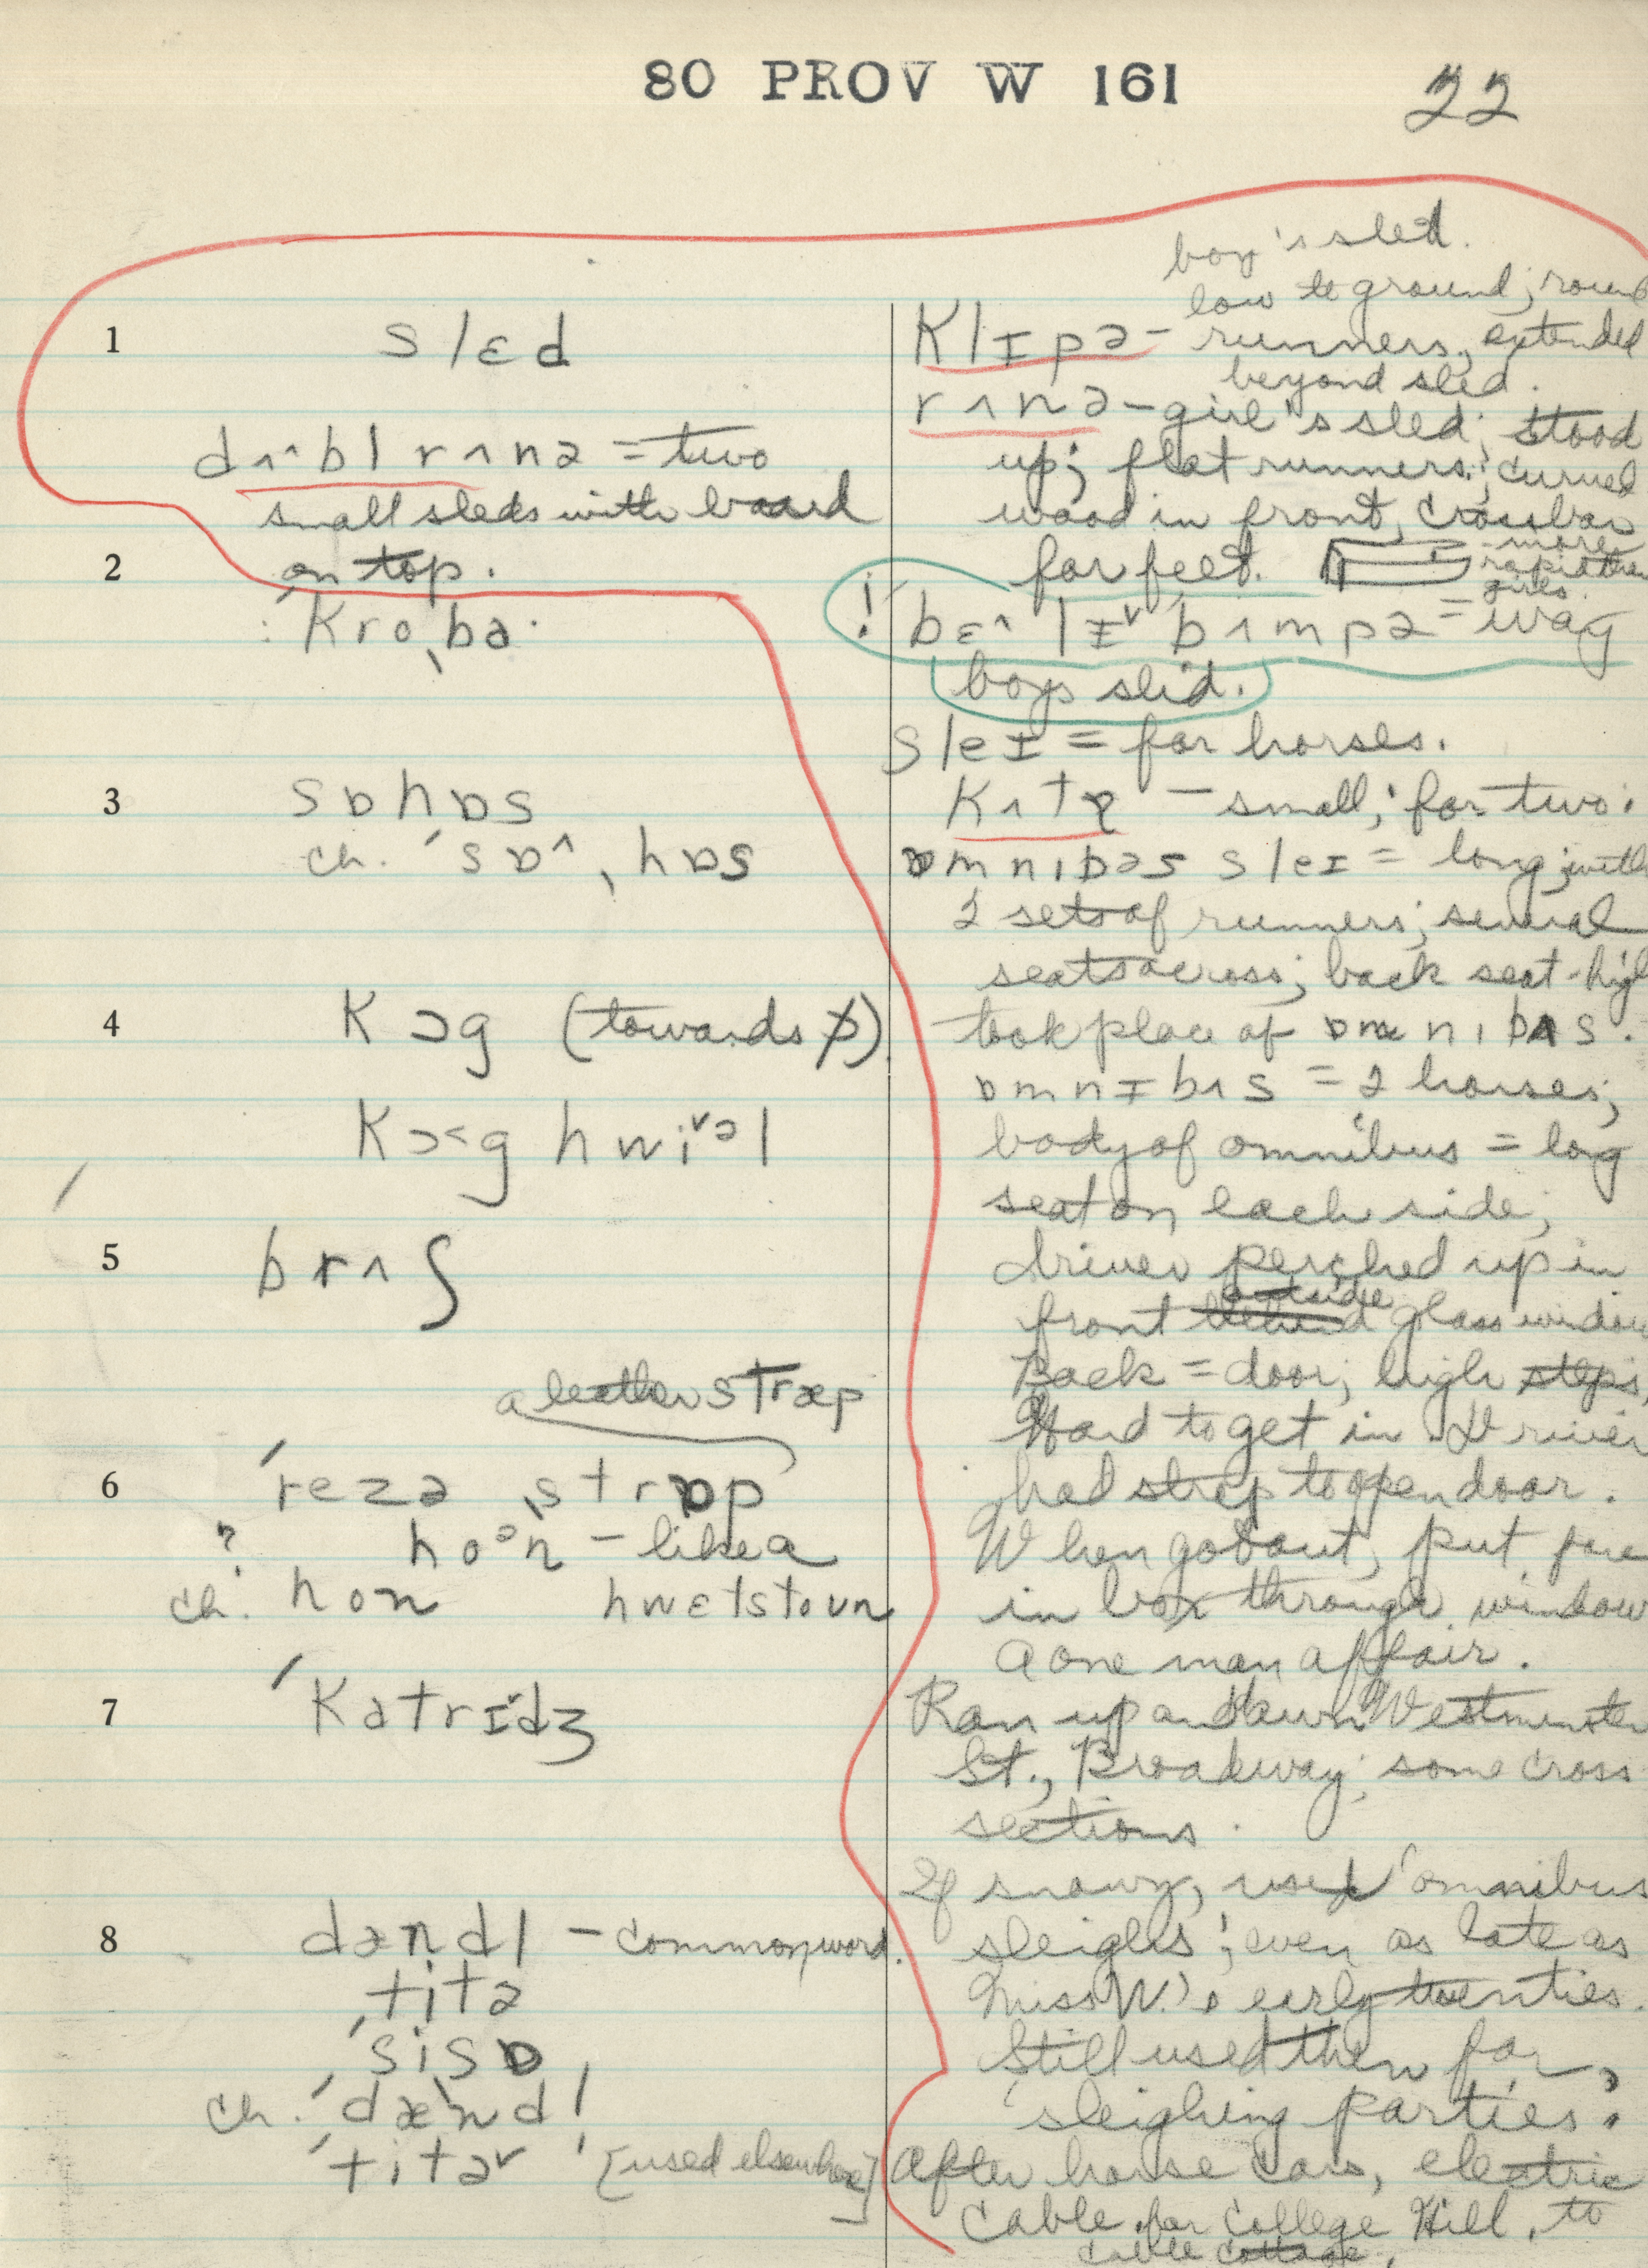 80 PROV W 161
22
1
slɛd
dʌ^bl rʌnə = two
small sleds with board
2
on top.
ˈkroˌbə
3
sɒhɒs
ch. ˈsɒ^ˌhɒs
4
kɔg (towards ɒ)
kɔ<g hwiᵛəl
5
brʌʃ
a leather stræp
6
ˈrezə ˌstrɒp
? hoᵊn – like a
ch. hon hwɛtstoun
7
ˈkatrɪdʒ
8
dændl – common word.
ˈtitə
ˈsisɒ
ch. ˈdændl
ˈtitəᵛ [used elsewhere]
boy's sled.
low to ground; round
klɪpə – runners, extended
beyond sled.
rʌnə – girl's sled; stood
up; flat runners; curved
wood in front, crossbar
for feet.
more
rapid than
girls.
! bɛ^lɪᵛ bʌmpə = way
boys slid.
sleɪ = for horses.
kʌtə – small; for two.
ɒmnɪbəs sleɪ = long; with
2 sets of runners; several
seats across; back seat high
took place of ɒmnibʌs.
ɒmnɪbʌs = 2 horses;
body of omnibus = log
seat on each side;
driver perched up in
front behind outside glass window
Back = door; high steps,
Hard to get in. Driver
had strap to open door.
When got out, put fare
in box through window
A one man affair.
Ran up and down Westminster
St., Broadway; some cross
sections.
If snowy, used omnibus
sleighs; even as late as
Miss W.'s early twenties.
Still used then for
sleighing parties.
After horse cars, electric
cable for College Hill, to
cable cottage.